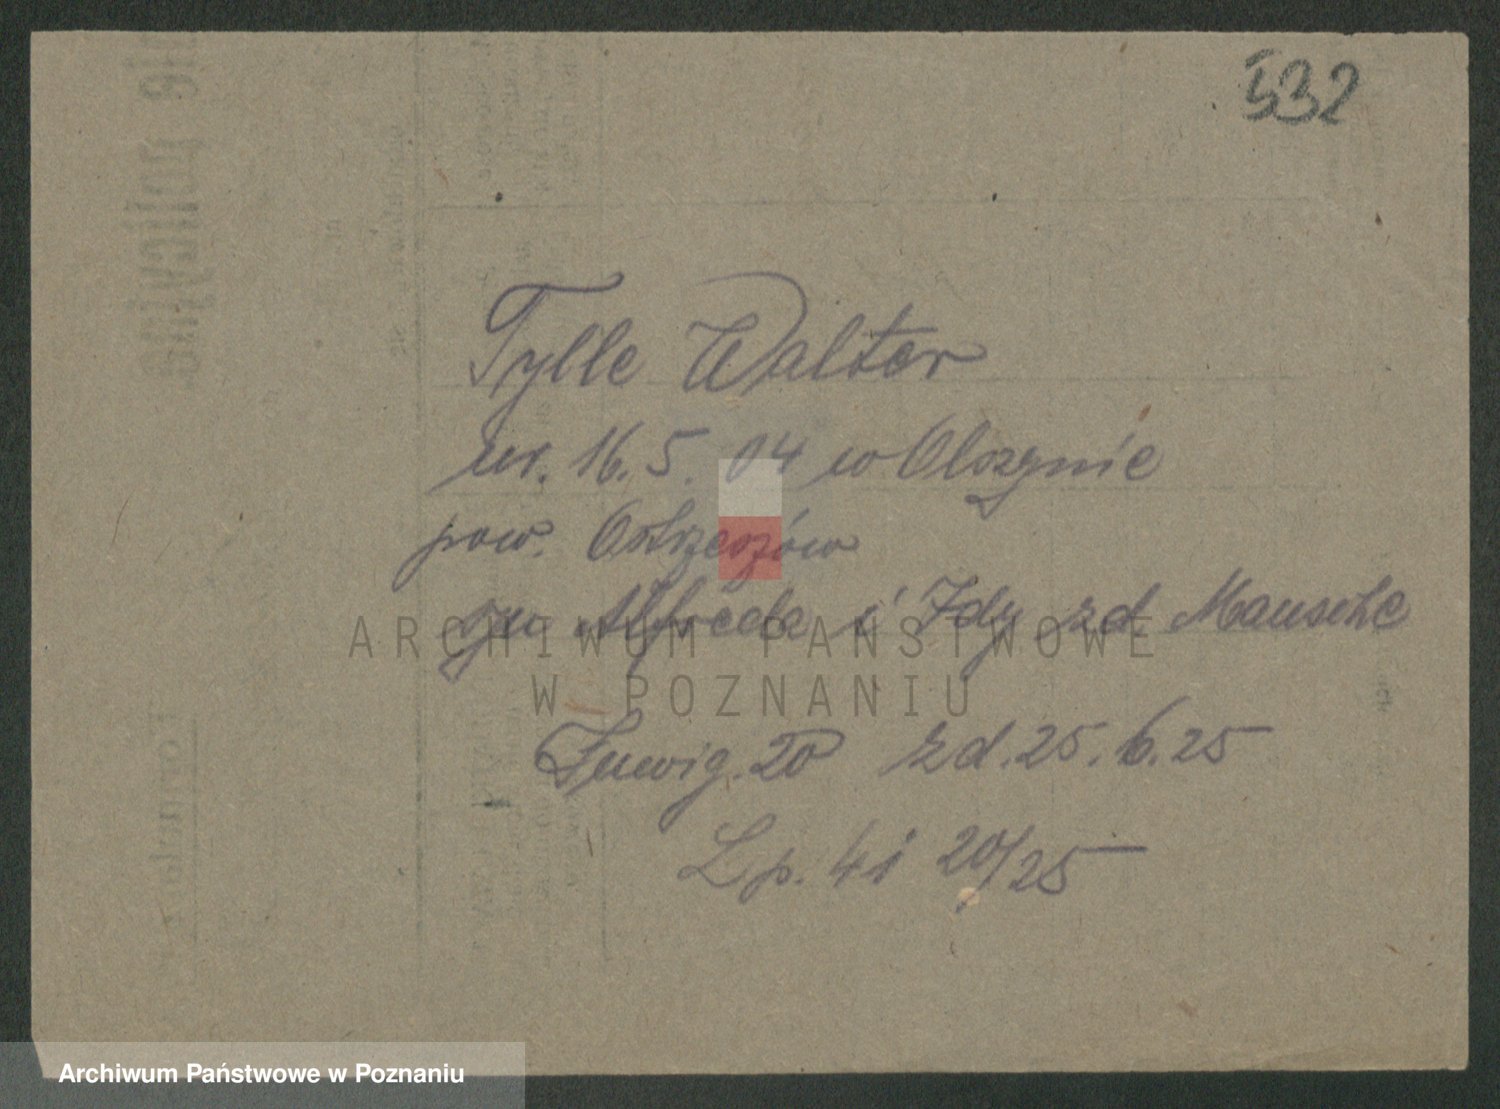 532
Tylle Walter
ur. 16.5.04 w Olszynie
pow. Ostrzeszów
syn Alfreda i Idy zd. Mansche
ARCHIWUM PAŃSTWOWE
W POZNANIU
zd. 25.6.25
Lp. 41 20/25
Archiwum Państwowe w Poznaniu